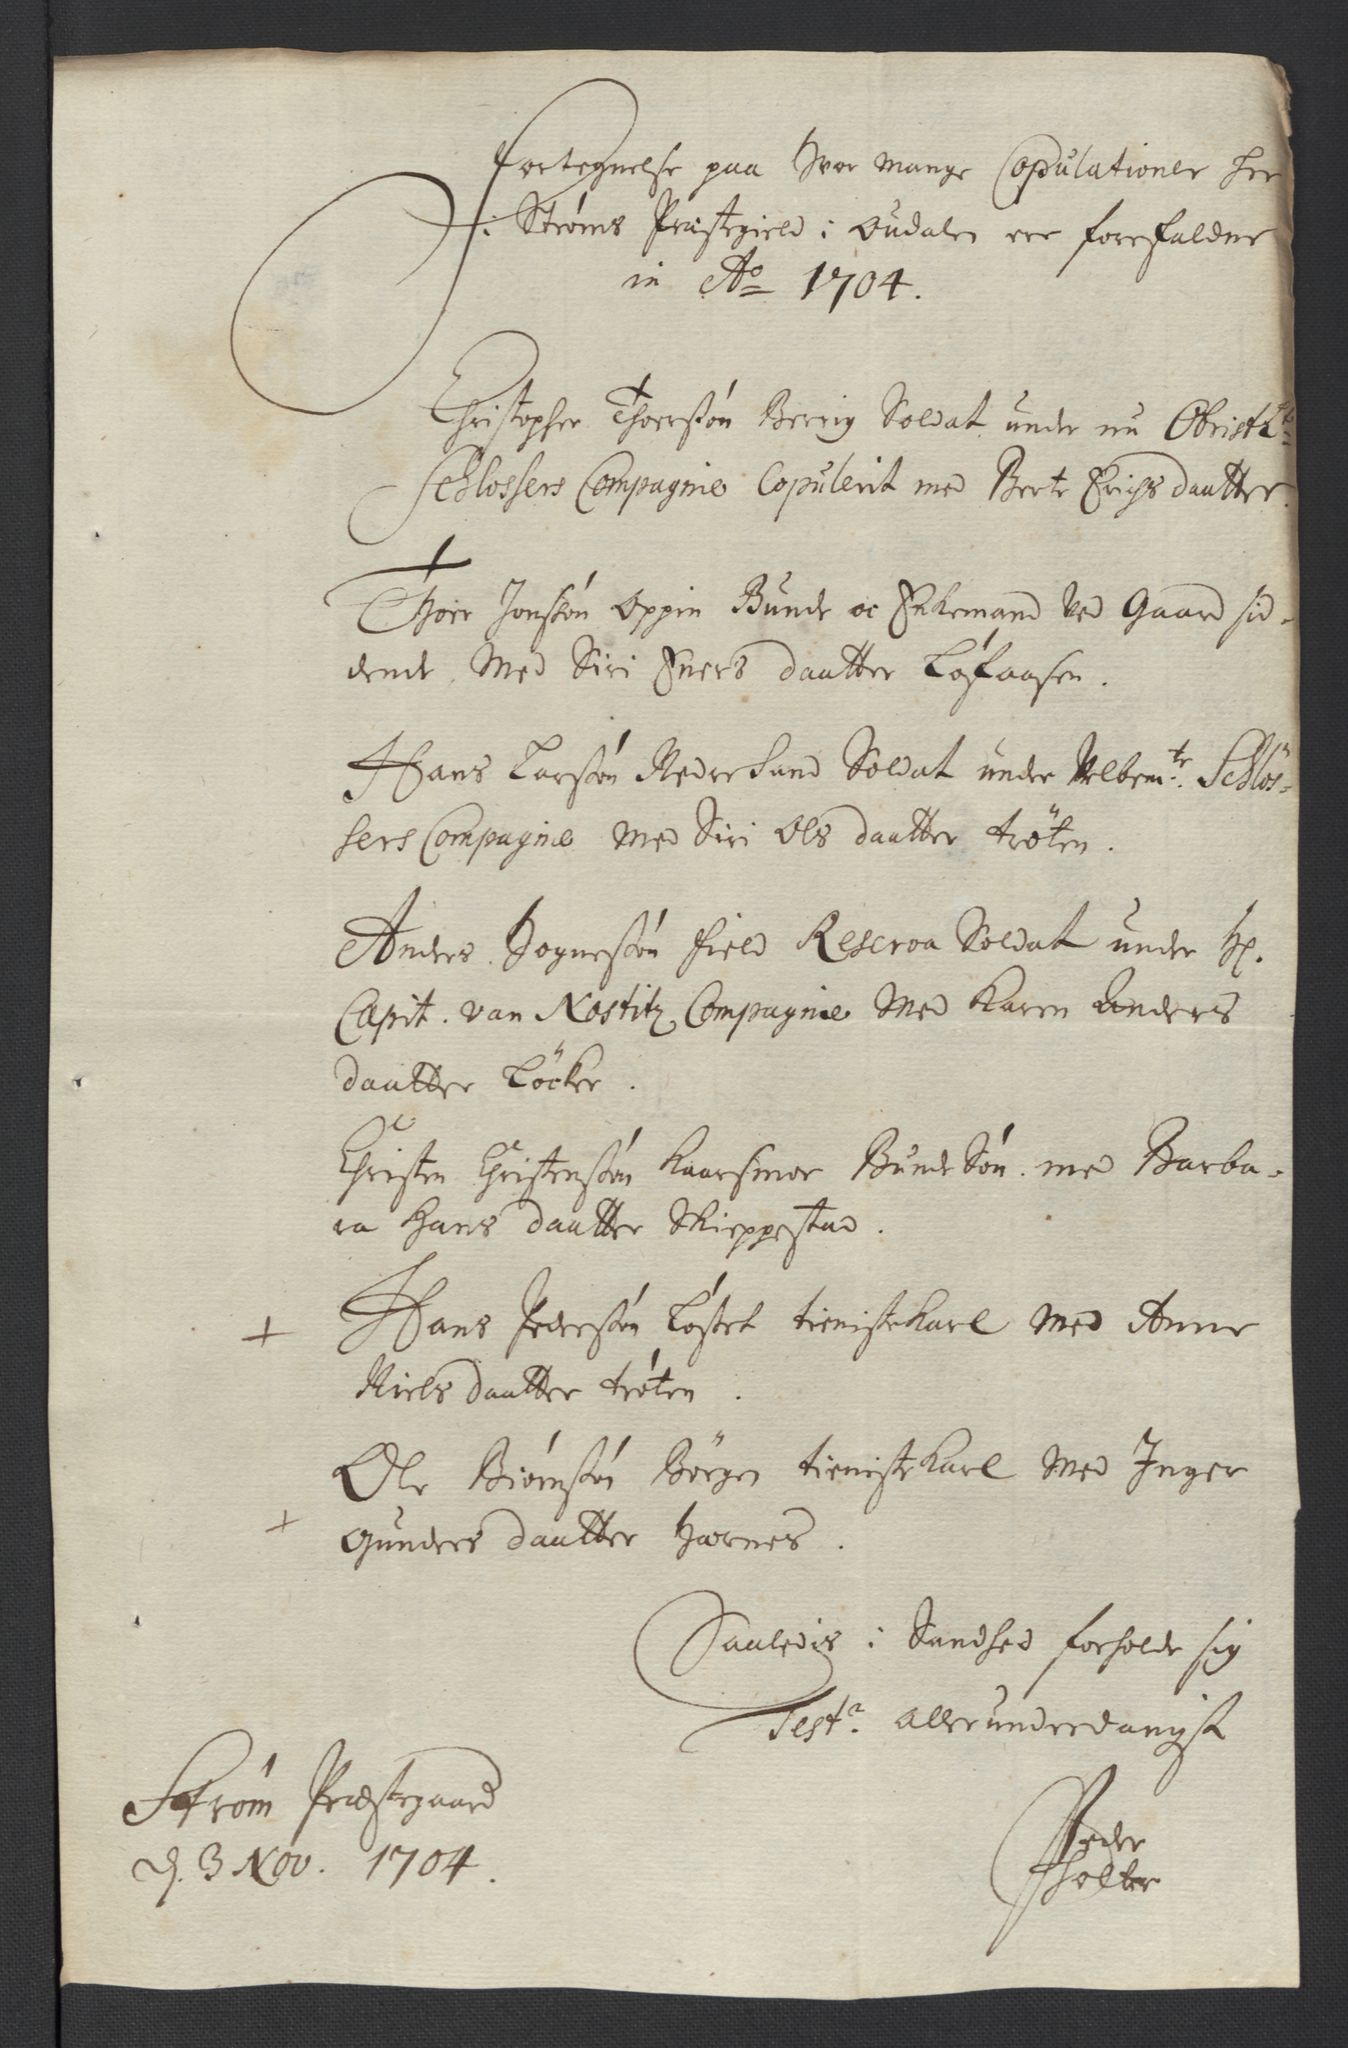 Fortegnelse paa hvor mange Copulationer her
i Strøms Præstegield i Oudalen ere forefaldne
in Ao 1704.
Christopher Thoersøn Berrig Soldat under nu Obrist Lt
Schlossers Compagnie Copulerit med Berte Erichs daatter
Thoer Jonsøn Oppin Bunde oc Enkemand ved Gaard sid-
dende, med Siri Eners daatter Løfaasen.
Hans Larsøn Nedre Sand Soldat under velbemte. Schlos-
sers Compagnie med Siri Ols daatter trøten.
Anders Dognesøn Field Reserva Soldat under Hr.
Capit. van Nostitz Compagnie med Karen Anders
daatter Löcker.
Christen Christensøn Kaarsmoe Bunde Søn. med Barba-
ra Hans daatter Skieppestad.
+ Hans Pedersøn Løstet tieniste Karl med Anne
Niels daatter trøten.
Ole Biørnsøn Börgen tieniste Karl med Inger
+ Gunders daatter Hornes.
Saaledis i Sandhed forholde sig
Test. allerunderdanigst
Strøm Præstegaard
d. 3 Nov. 1704.
Peder
Holter